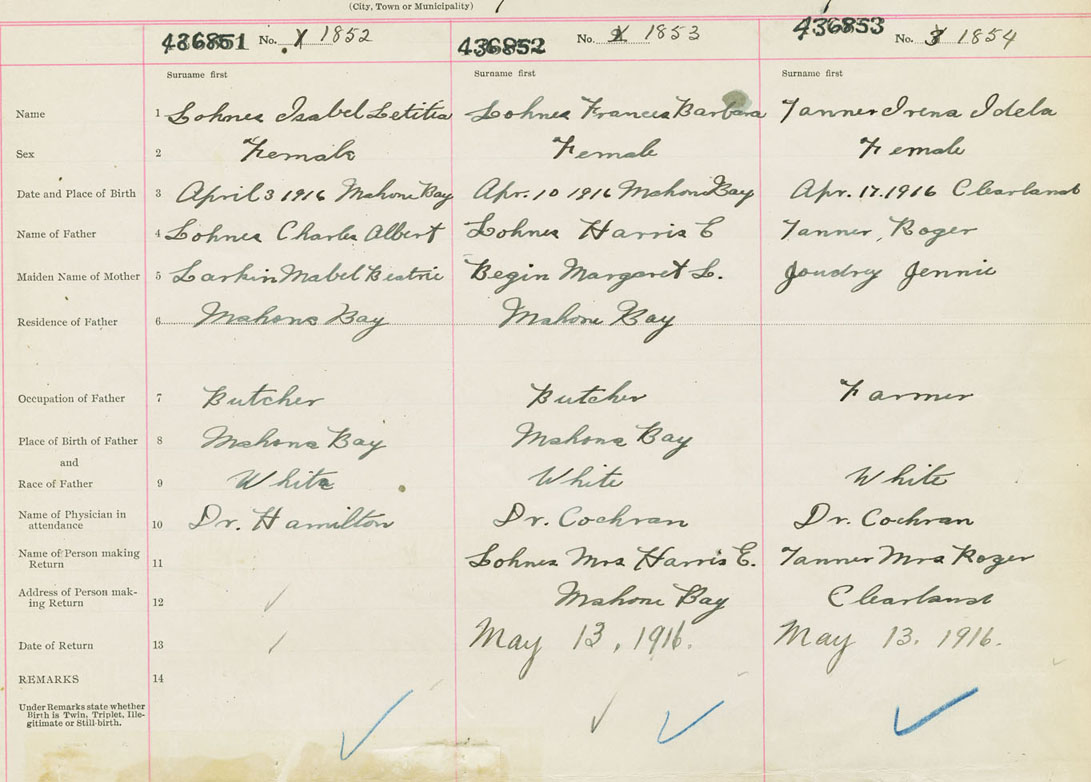 (City, Town or Municipality)
436851 No. 1 1852 436852 No. 2 1853 436853 No. 3 1854
Surname first Surname first Surname first
Name 1 Lohnes Isabel Letitia Lohnes Frances Barbara Tanner Irena Idela
Sex 2 Female Female Female
Date and Place of Birth 3 April 3 1916 Mahone Bay Apr. 10 1916 Mahone Bay Apr. 17. 1916 Clearland
Name of Father 4 Lohnes Charles Albert Lohnes Harris E Tanner, Roger
Maiden Name of Mother 5 Larkin Mabel Beatric Begin Margaret L. Joudrey Jennie
Residence of Father 6 Mahone Bay Mahone Bay
Occupation of Father 7 Butcher Butcher Farmer
Place of Birth of Father 8 Mahone Bay Mahone Bay
and
Race of Father 9 White White White
Name of Physician in
attendance 10 Dr. Hamilton Dr. Cochran Dr. Cochran
Name of Person making
Return 11 Lohnes Mrs Harris E. Tanner Mrs Roger
Address of Person mak-
ing Return 12 Mahone Bay Clearland
Date of Return 13 May 13, 1916. May 13. 1916.
REMARKS 14
Under Remarks state whether
Birth is Twin, Triplet, Ille-
gitimate or Still-birth.